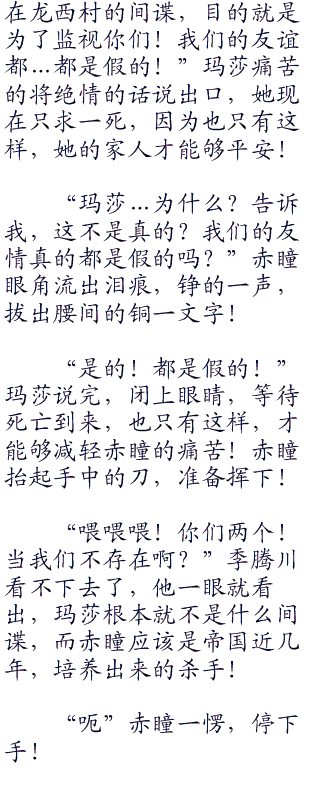 在龙西村的间谍，目的就是
为了监视你们！我们的友谊
都…都是假的！”玛莎痛苦
的将绝情的话说出口，她现
在只求一死，因为也只有这
样，她的家人才能够平安！
“玛莎…为什么？告诉
我，这不是真的？我们的友
情真的都是假的吗？”赤瞳
眼角流出泪痕，铮的一声，
拔出腰间的铜一文字！
“是的！都是假的！”
玛莎说完，闭上眼睛，等待
死亡到来，也只有这样，才
能够减轻赤瞳的痛苦！赤瞳
抬起手中的刀，准备挥下！
“喂喂喂！你们两个！
当我们不存在啊？”季腾川
看不下去了，他一眼就看
出，玛莎根本就不是什么间
谍，而赤瞳应该是帝国近几
年，培养出来的杀手！
“呃”赤瞳一愣，停下
手！